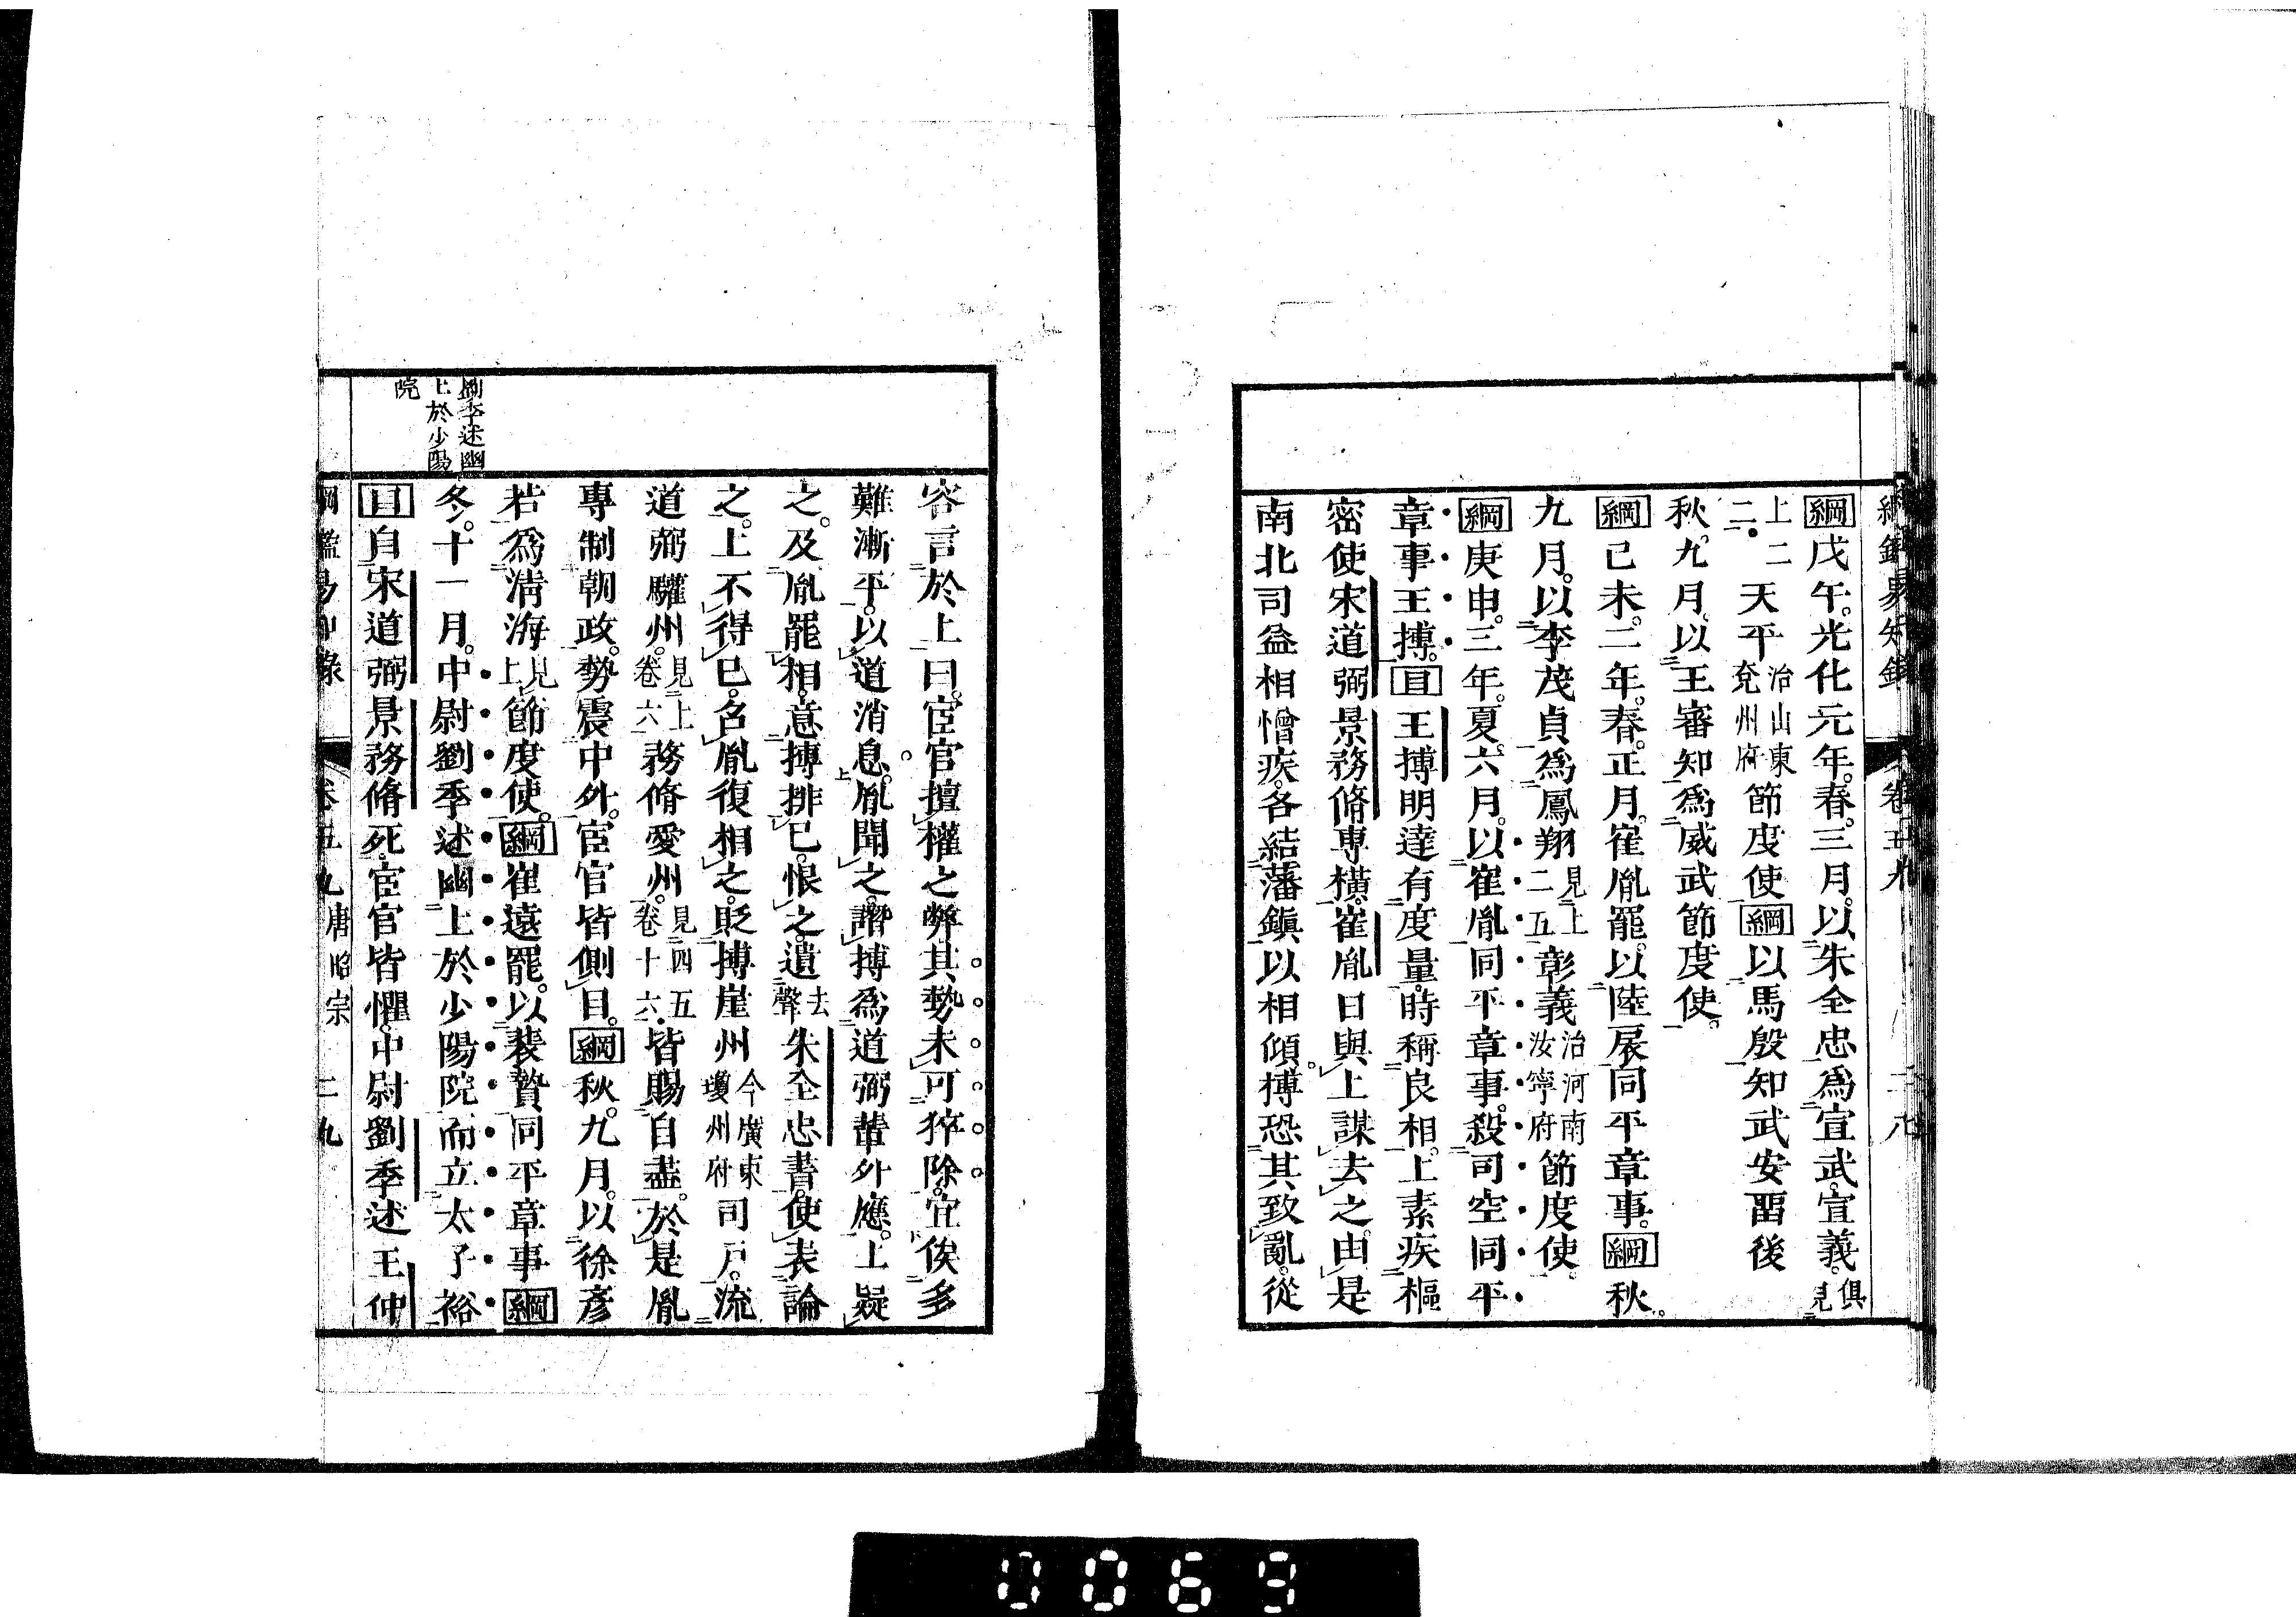 綱鑑易知錄 卷五九
綱戊午。光化元年。春。三月。以朱全忠爲宣武。宣義。俱見
上二二。天平治山東兗州府節度使綱以馬殷知武安畱後
秋。九月。以王審知爲威武節度使。
綱己未。二年。春。正月。崔胤罷。以陸扆同平章事。綱秋。
九月。以李茂貞爲鳳翔見上二五彰義治河南汝寧府節度使。
綱庚申。三年。夏。六月。以崔胤同平章事。殺司空同平
章事王摶。目王摶明達有度量。時稱良相。上素疾樞
密使宋道弼景務脩專橫。崔胤日與上謀去之。由是
南北司益相憎疾。各結藩鎭以相傾。摶恐其致亂。從
容言於上曰。宦官擅權之弊。其勢未可猝除。宜俟多
難漸平。以道消息。胤聞之。譖摶爲道弼輩外應。上疑
之。及胤罷相。意摶排己。恨之。遺去聲朱全忠書。使表論
之。上不得已。召胤復相之。貶摶崖州今廣東瓊州府司戶。流
道弼驩州。見上卷六務脩愛州。見四五卷十六。皆賜自盡。於是胤
專制朝政。勢震中外。宦官皆側目。綱秋。九月。以徐彥
若爲淸海見上節度使。綱崔遠罷。以裴贄同平章事綱
冬。十一月。中尉劉季述幽上於少陽院而立太子裕
目自宋道弼景務脩死。宦官皆懼。中尉劉季述王仲
劉季述幽
上於少陽
院
綱鑑易知錄 卷五九 唐昭宗 二九
0069